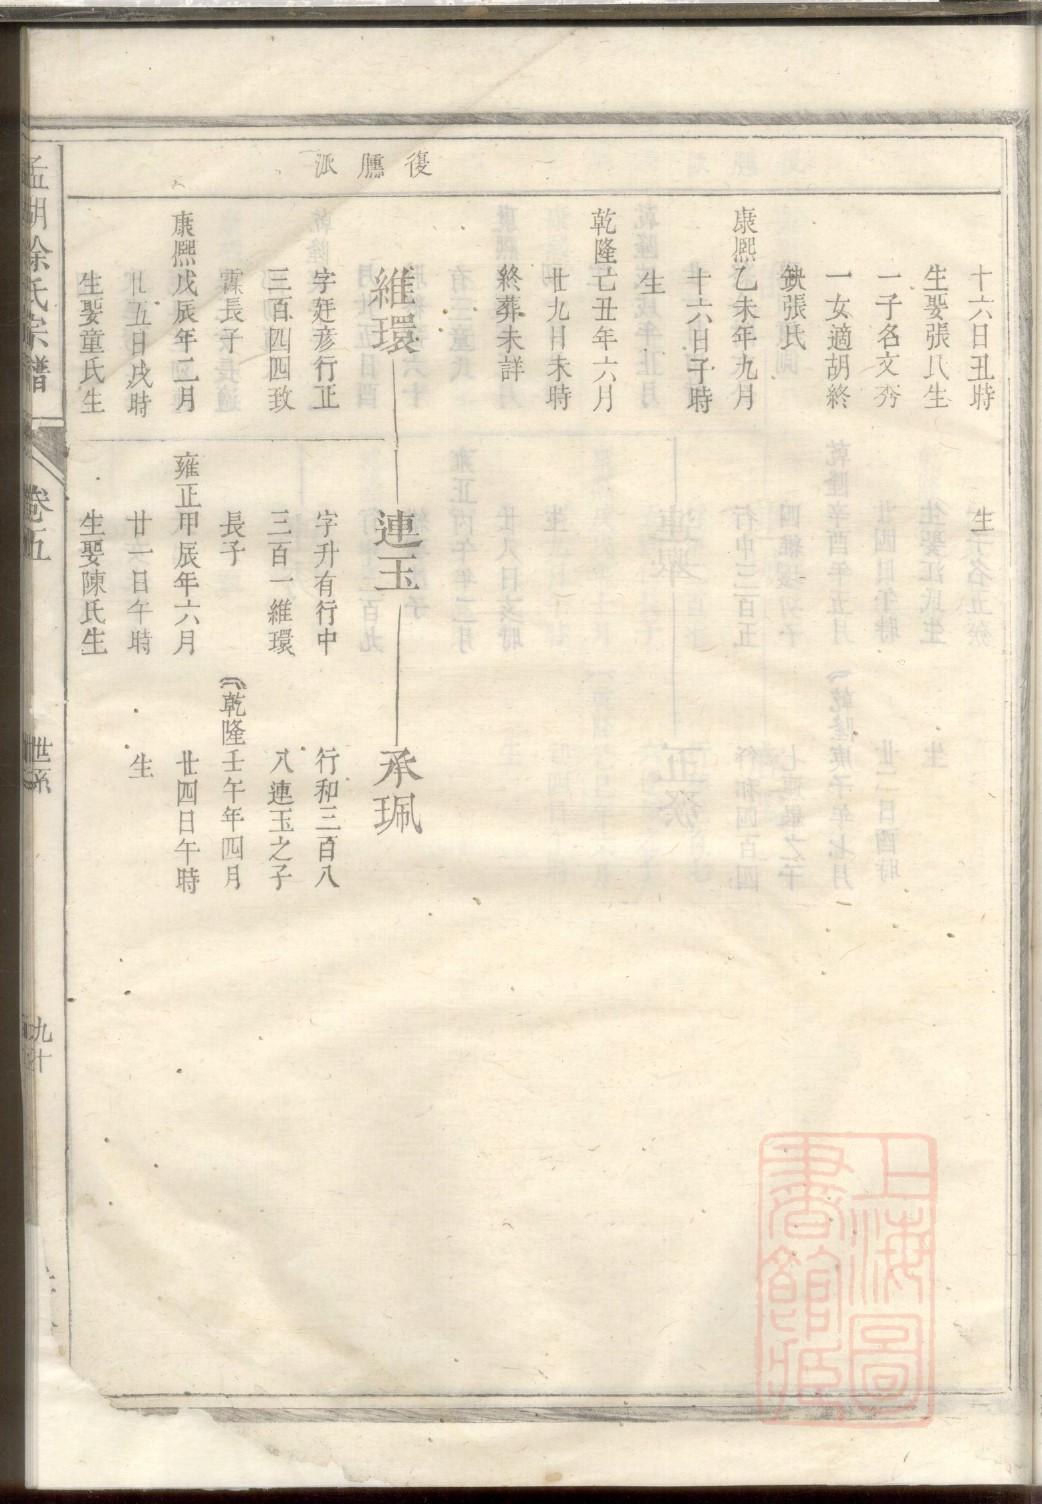 復鵬派
十六日丑時
生娶張氏生
一子名文秀
一女適胡終
缺張氏
康熙乙未年九月
十六日子時
生
乾隆己丑年六月
廿九日未時
終葬未詳
維環
字廷彦行正
三百四四玫
霖長子
康熙戊辰年二月
廿五日戌時
生娶童氏生
生
連玉
字升有行中
三百一維環
長子
雍正甲辰年六月
廿一日午時
生娶陳氏生
承珮
行和三百八
八連玉之子
乾隆壬午年四月
廿四日午時
生
孟湖徐氏宗譜
卷五
世系
九十
上海圖書館藏